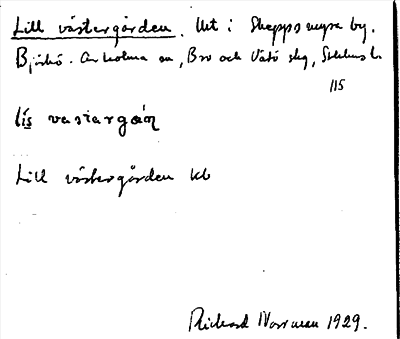 Lill västergården. Utt i Skeppsmyra by.
Björkö-Arholma sn, Bro och Vätö skg, Sthlms l.
115
lís vastargáɳ
Lill västergården kb
Rickard Norrman 1929.